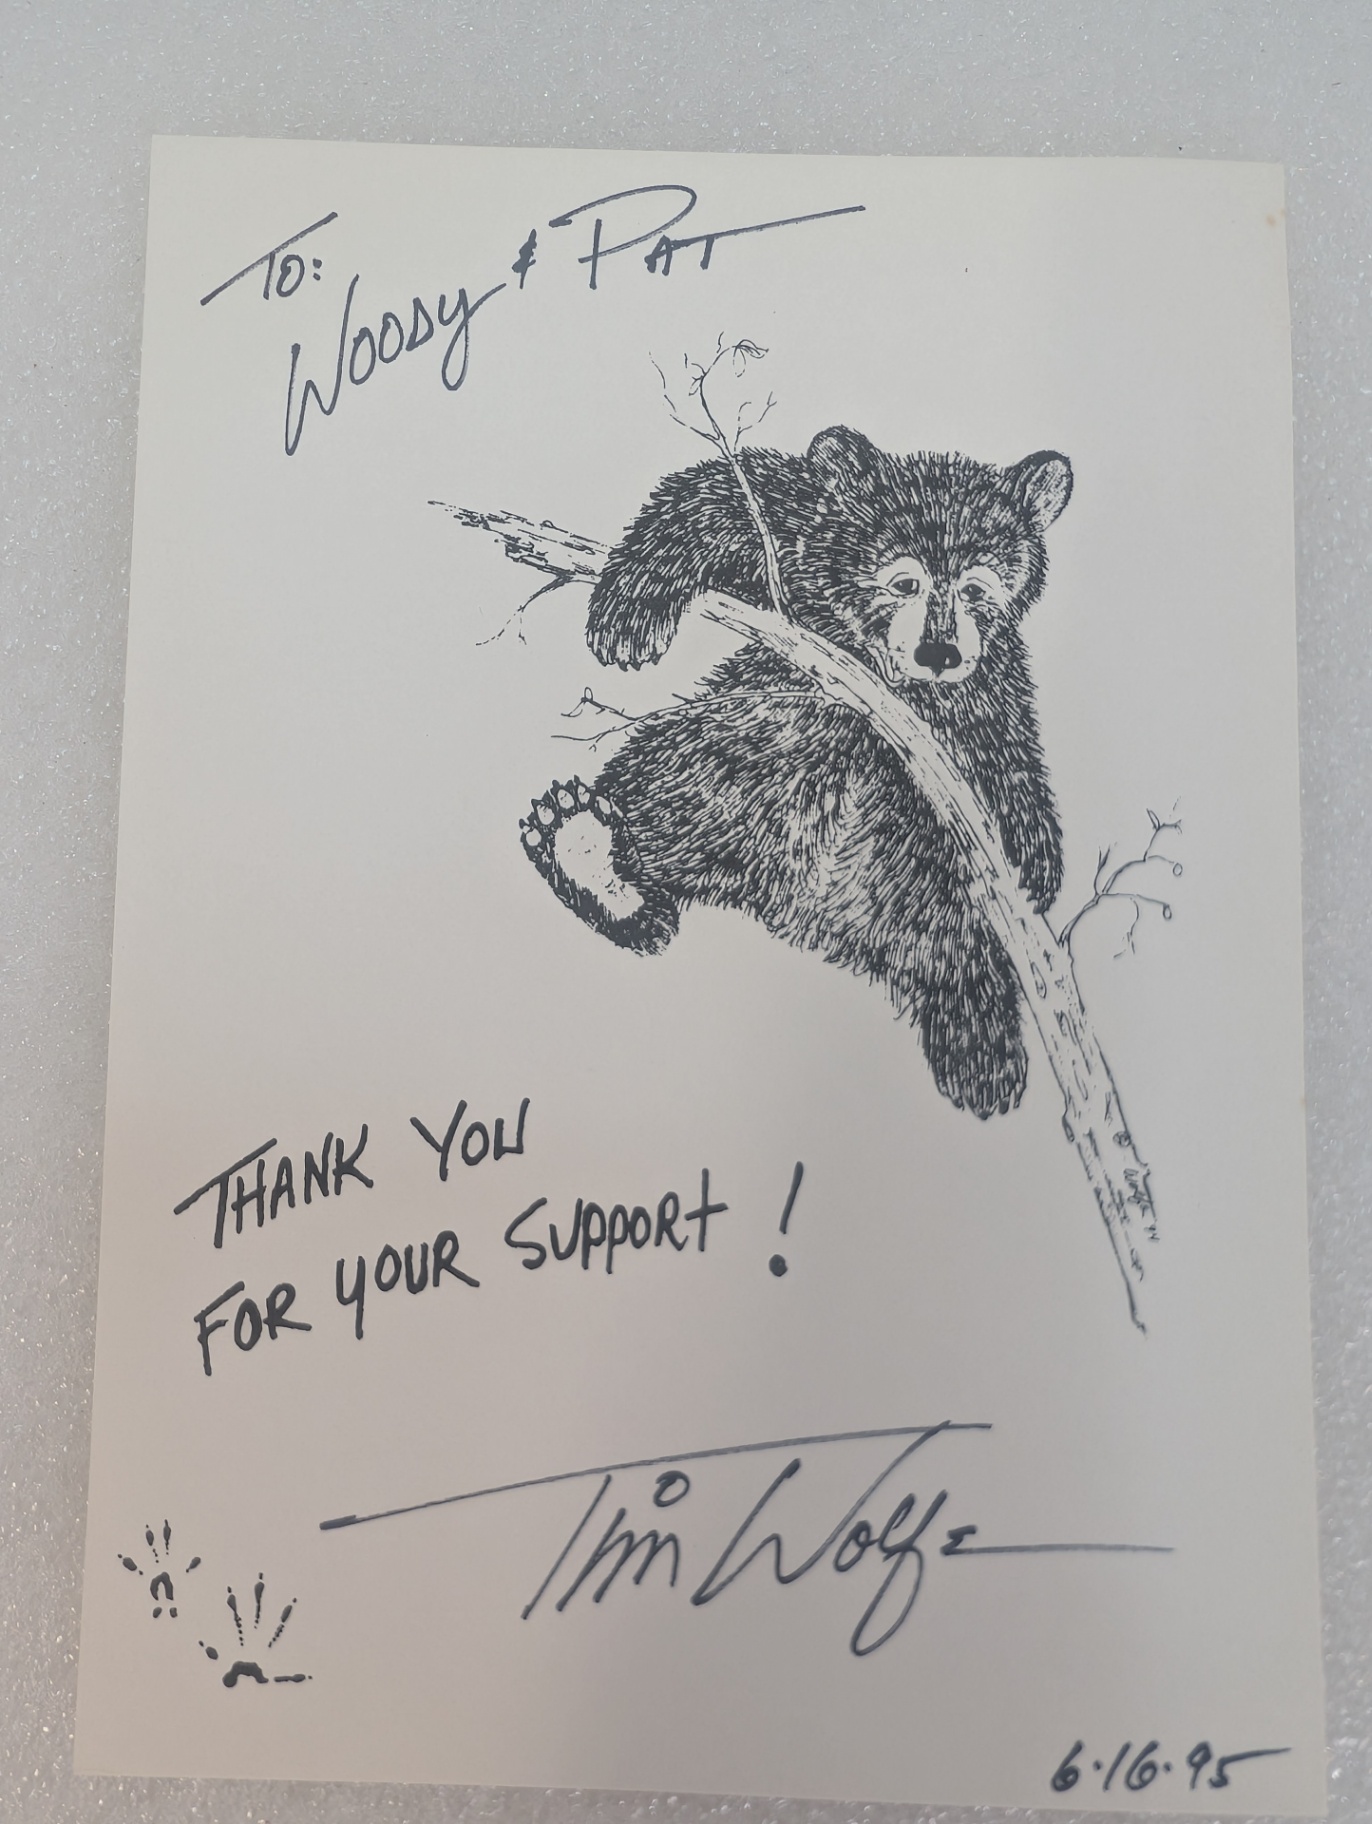 To:
Woody & Pat
THANK YOU
FOR YOUR SUPPORT!
Tim Wolfe
6·16·95